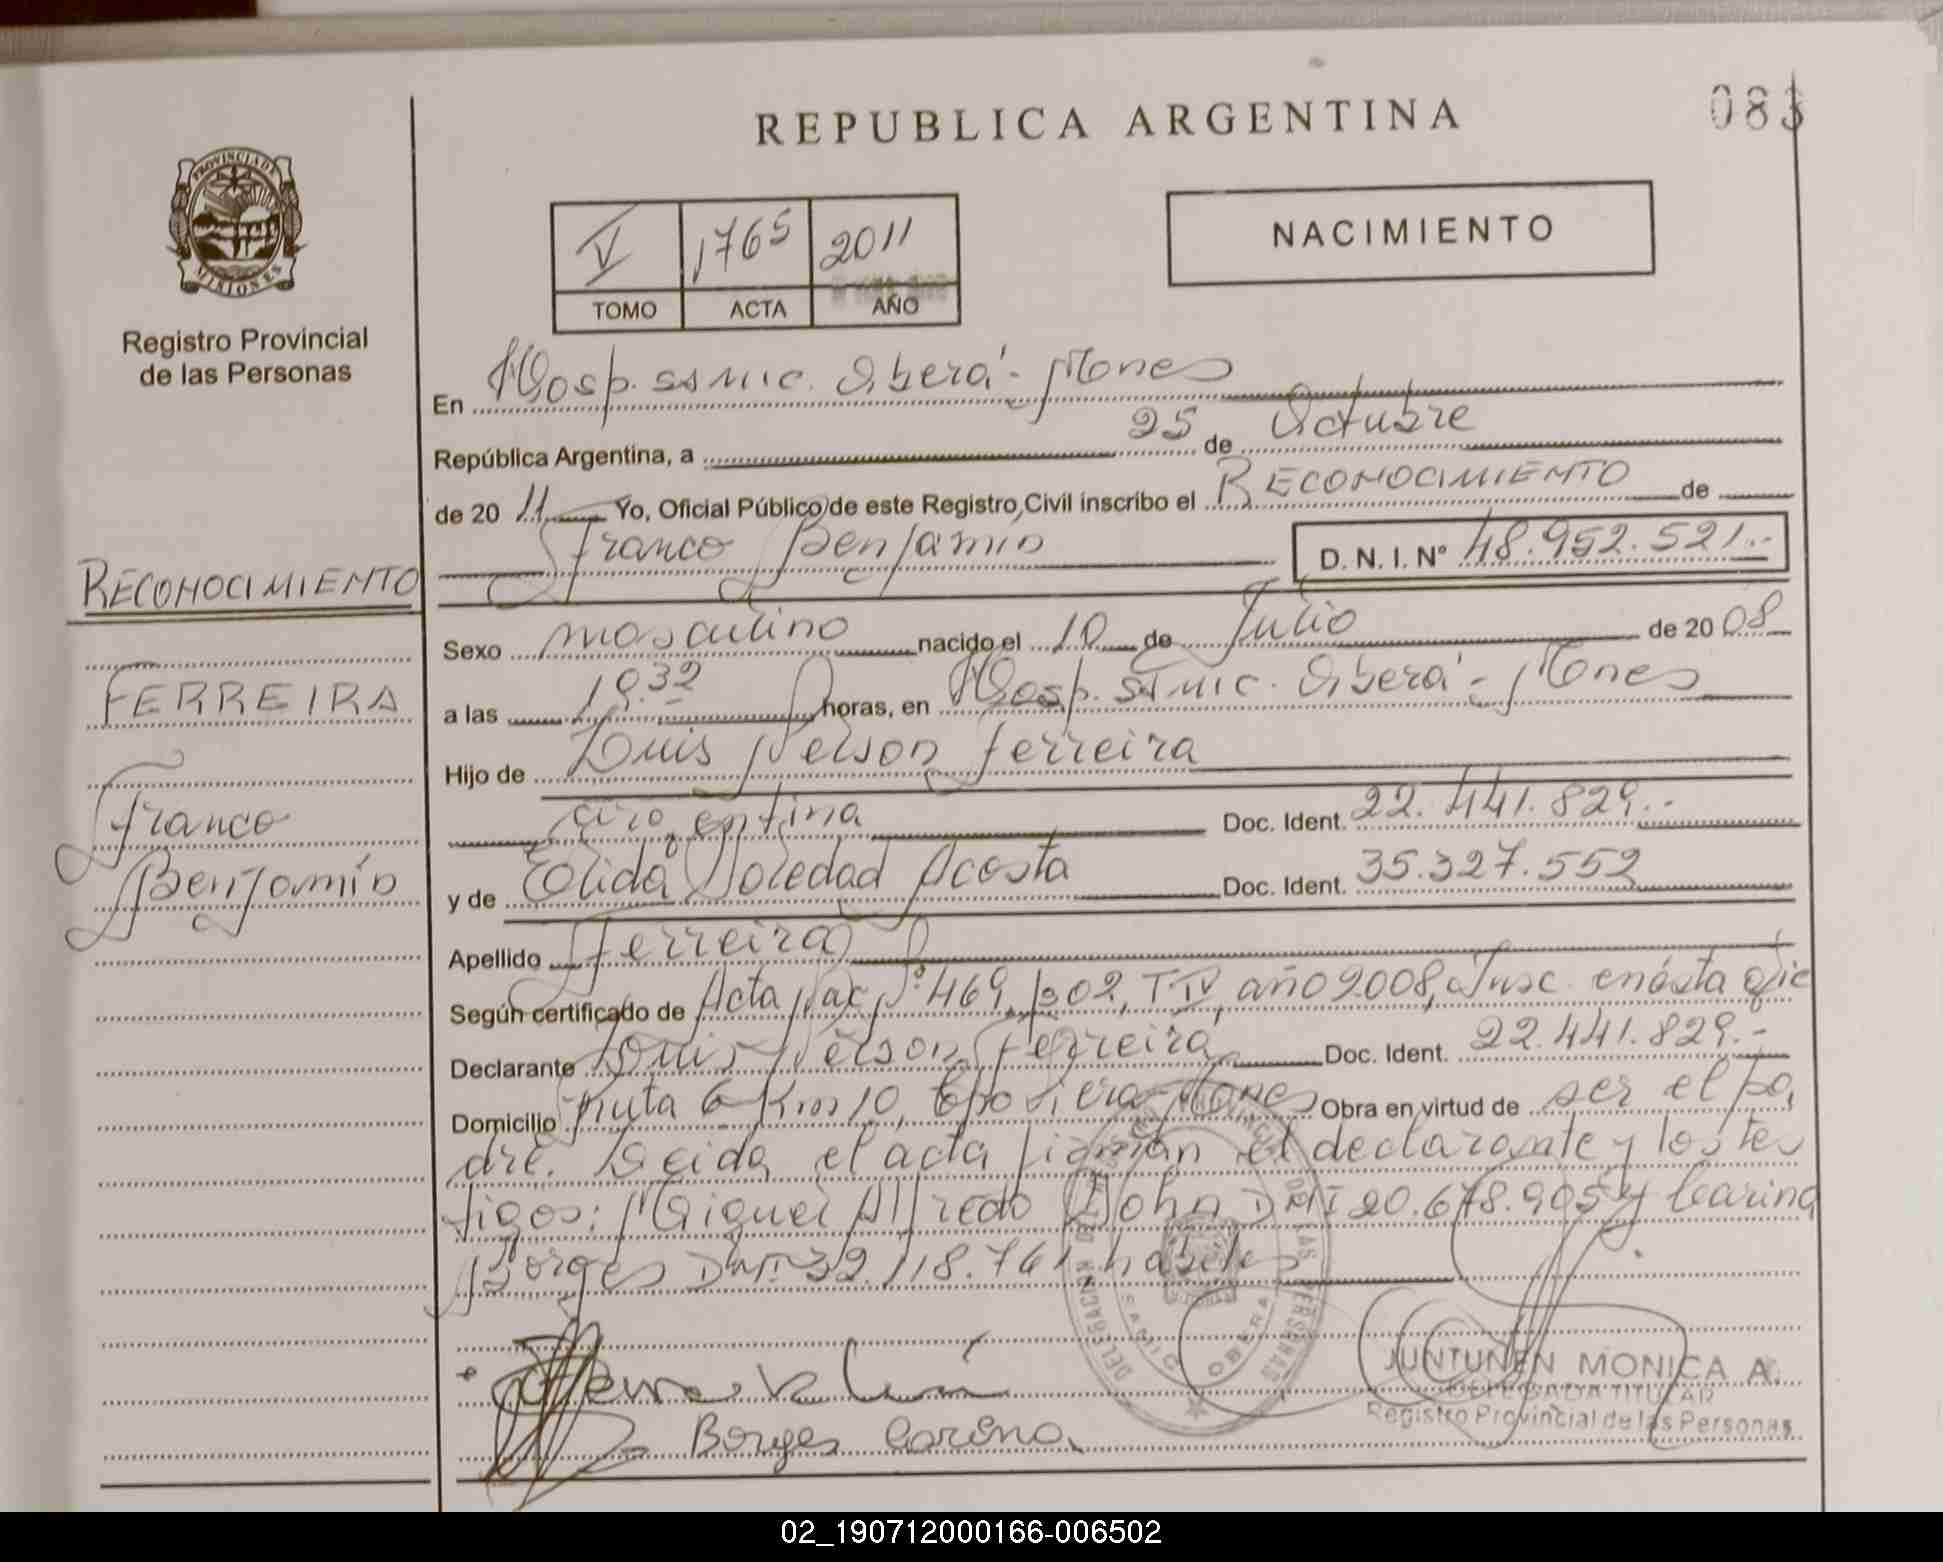 REPUBLICA ARGENTINA
083
PROVINCIA DE
MISIONES
Registro Provincial
de las Personas
V 1765 2011
TOMO ACTA AÑO
NACIMIENTO
En Hosp. ssmic. Oberá - Mones
República Argentina, a 25 de Octubre
de 2011 Yo, Oficial Público de este Registro Civil inscribo el RECONOCIMIENTO de
Franco Benjamin D. N. I. Nº 48.952.521.-
RECONOCIMIENTO
FERREIRA
Franco
Benjamin
Sexo masculino nacido el 10 de Julio de 2008
a las 19.32 horas, en Hosp. ssmic. Oberá - Mones
Hijo de Luis Nelson Ferreira
argentina Doc. Ident. 22.441.829.-
y de Elida Soledad Acosta Doc. Ident. 35.327.552
Apellido Ferreira
Según certificado de Acta Nac. Nº 469, Fº 02, T IV, año 2008, Insc. en ésta ofic
Declarante Luis Nelson Ferreira Doc. Ident. 22.441.829.-
Domicilio Ruta 6 Km 10, Cpo Viera - Mones Obra en virtud de ser el pa,
dre. Leida el acta firman el declarante y los tes
tigos: Miguel Alfredo Dohn DNI 20.678.905 y Carina
Borges DNI 32.118.761 habiles
DELEGACION DE LAS PERSONAS
SAMIC OBERA
JUNTUNEN MONICA A.
DELEGADA TITULAR
Registro Provincial de las Personas
Borges Carina
02_190712000166-006502